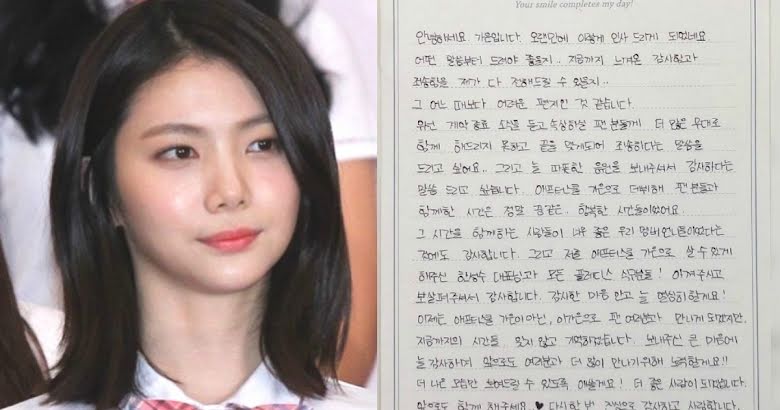 Your smile completes my day!
안녕하세요. 가은입니다. 오랜만에 이렇게 인사 드리게 되었네요.
어떤 말씀부터 드려야 좋을지.. 지금까지 느껴온 감사함과
죄송함을 제가 다 전해드릴 수 있을지..
그 어느 때보다 어려운 편지인 것 같습니다.
우선 계약 종료 소식을 듣고 속상하실 팬 분들께 더 많은 무대로
함께 해드리지 못하고 끝을 맺게되어 죄송하다는 말씀을
드리고 싶어요.. 그리고 늘 따뜻한 응원을 보내주셔서 감사하다는
말씀 드리고 싶습니다. 애프터스쿨 가은으로 데뷔해 팬 분들과
함께한 시간은 정말 꿈같은.. 행복한 시간들이었어요
그 시간을 함께하는 사람들이 너무 좋은 우리 멤버 언니들이었다는
것에도 감사합니다. 그리고 저를 애프터스쿨 가은으로 살 수 있게
해주신 한성수 대표님과 모든 플레디스 식구분들! 아껴주시고
보살펴주셔서 감사합니다. 감사한 마음 안고 늘 열심히 할게요!
이제는 애프터스쿨 가은이 아닌, 이가은으로 팬 여러분과 만나게 되겠지만,
지금까지의 시간들 잊지 않고 기억하겠습니다. 보내주신 큰 마음에
늘 감사하며 앞으로도 여러분과 더 많이 만나기위해 노력할게요!!
더 나은 모습만 보여드릴 수 있도록 애쓸게요! 더 좋은 사람이 되겠습니다.
앞으로도 함께 해주세요 ♥ 다시한번 진심으로 감사하고 사랑합니다.